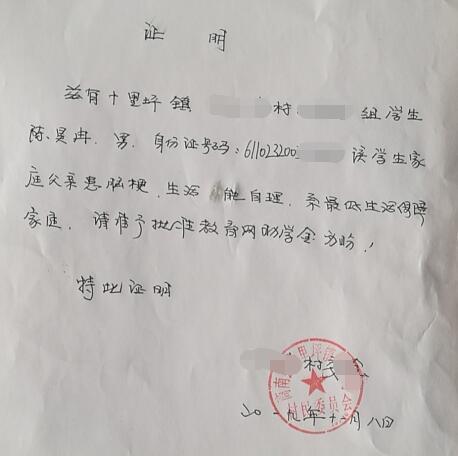 证 明
兹有十里坪镇 村 组学生
陈昊冉，男，身份证号码：611023200 该学生家
庭父亲患脑梗，生活 能自理，系最低生活保障
家庭，请准予批准教育网助学金为盼！
特此证明
村民
村民委员会
二〇一九年十一月八日